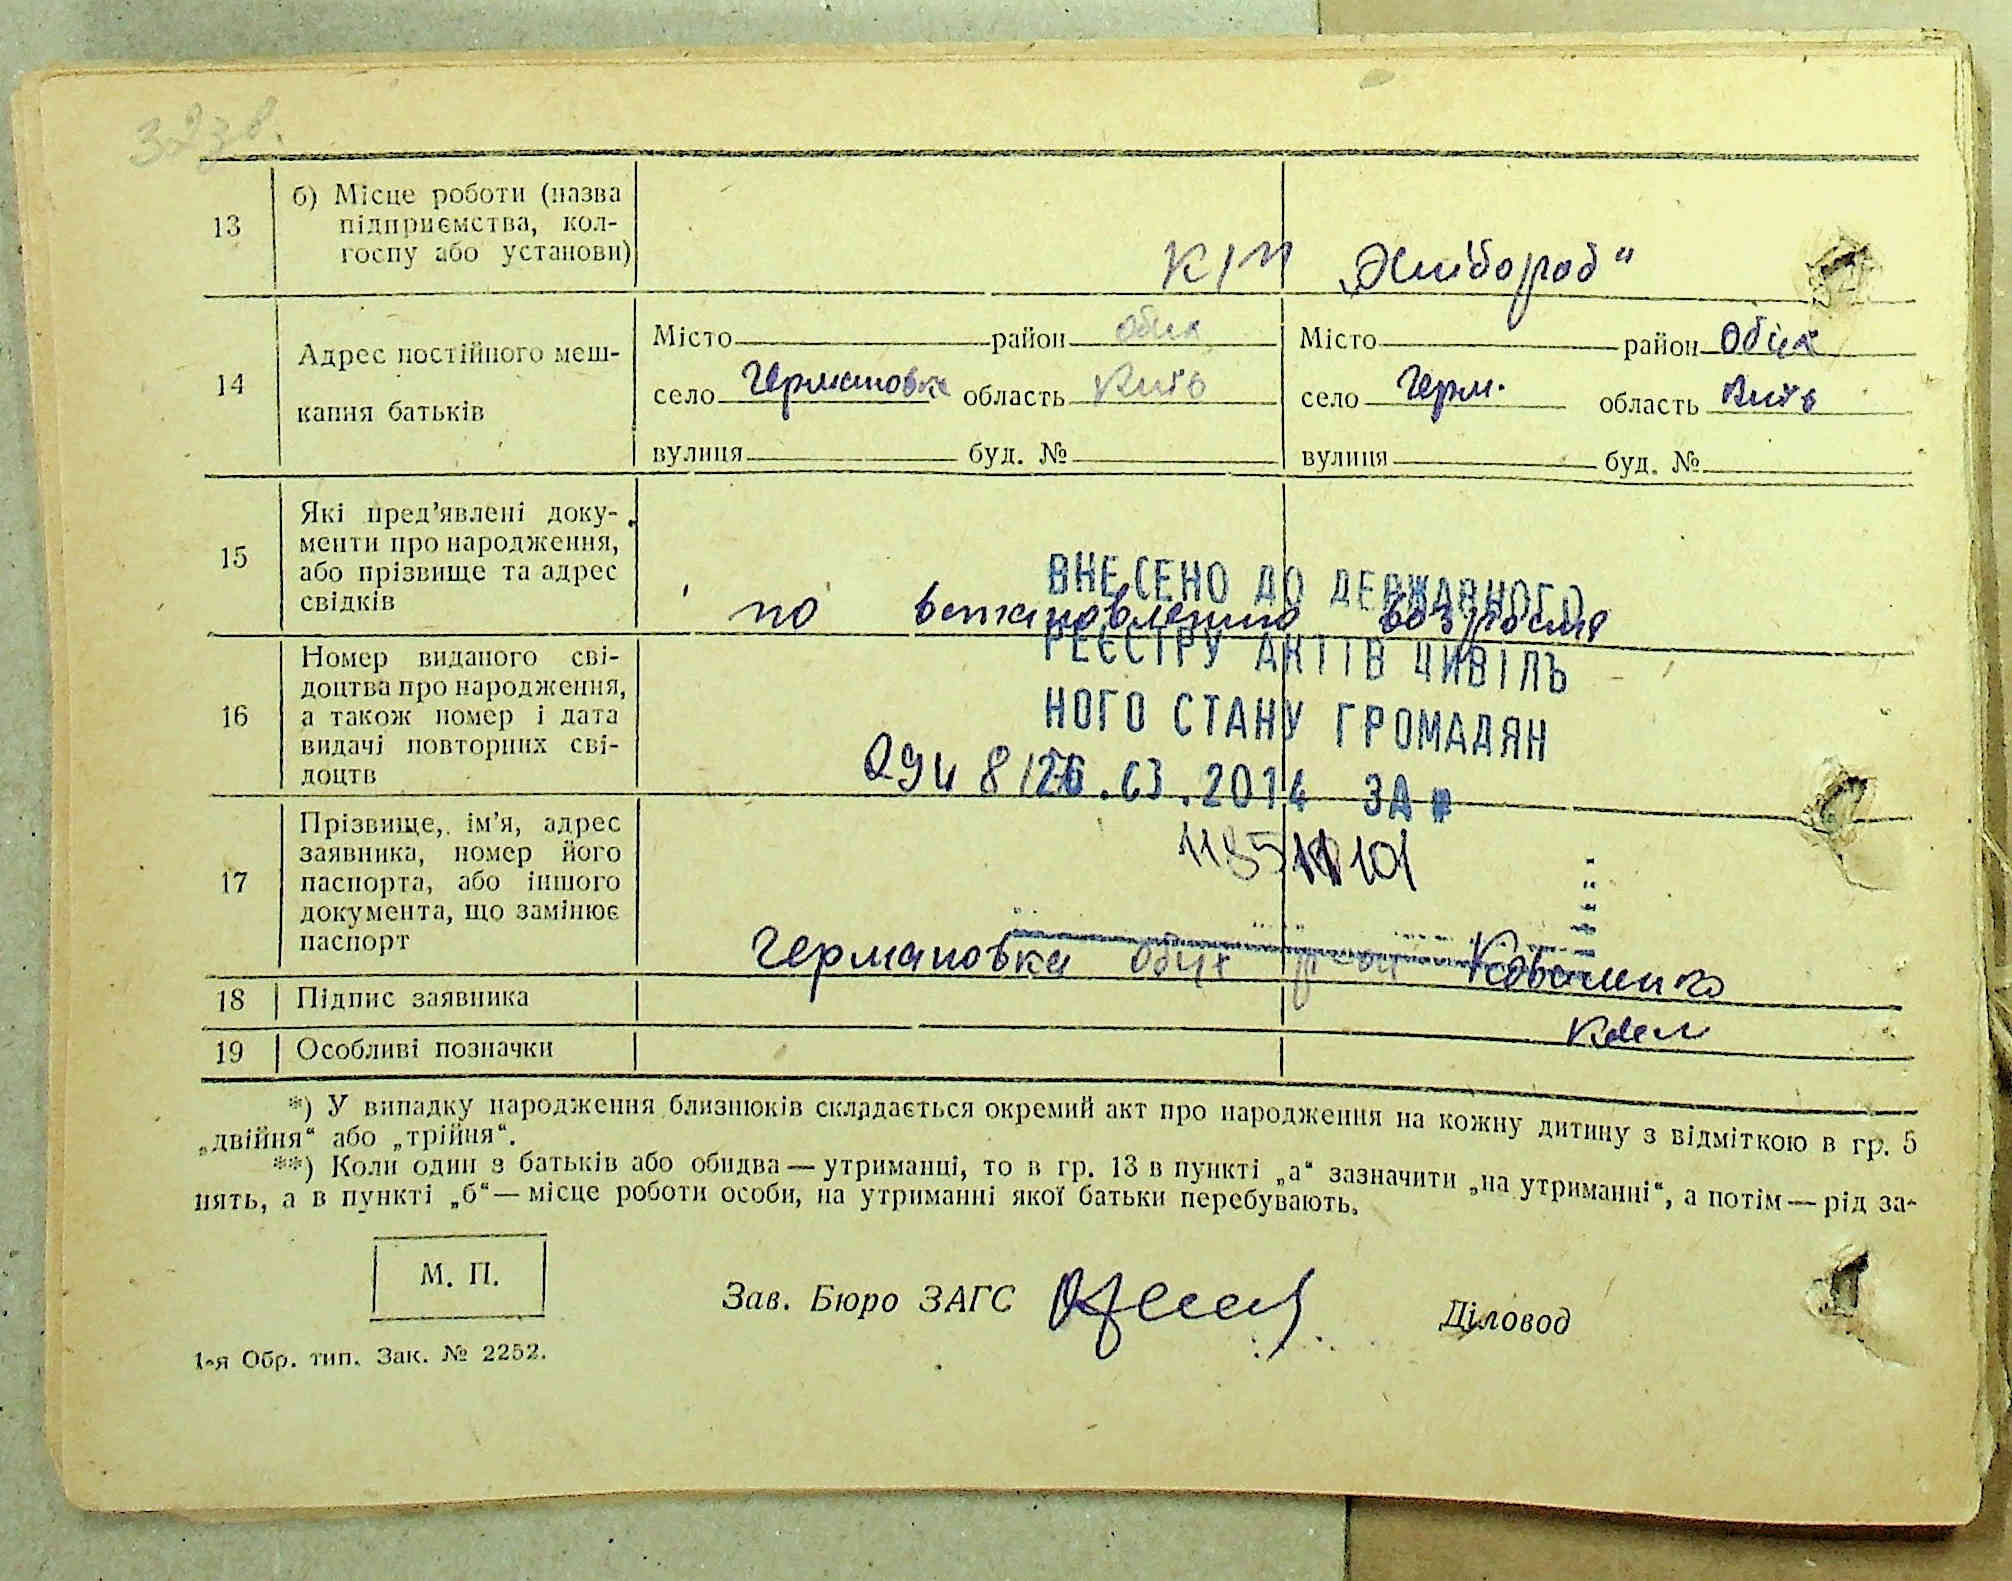 323в.
13
б) Місце роботи (назва
підприємства, кол-
госпу або установи)
К/Г „Хлібороб“
14
Адрес постійного меш-
кання батьків
Місто район Обух
село Германовка область Київ
вулиця буд. №
Місто район Обух
село Герм. область Київ
вулиця буд. №
15
Які пред’явлені доку-
менти про народження,
або прізвище та адрес
свідків
по встановлению возраста
ВНЕСЕНО ДО ДЕРЖАВНОГО
РЕЄСТРУ АКТІВ ЦИВІЛЬ
НОГО СТАНУ ГРОМАДЯН
26.03.2014 ЗА №
16
Номер виданого сві-
доцтва про народження,
а також номер і дата
видачі повторних сві-
доцтв
17
Прізвище, ім’я, адрес
заявника, номер його
паспорта, або іншого
документа, що замінює
паспорт
Германовка Обух Коваленко
18
Підпис заявника
19
Особливі позначки
*) У випадку народження близнюків складається окремий акт про народження на кожну дитину з відміткою в гр. 5
„двійня“ або „трійня“.
**) Коли один з батьків або обидва — утриманці, то в гр. 13 в пункті „а“ зазначити „на утриманні“, а потім — рід за-
нять, а в пункті „б“ — місце роботи особи, на утриманні якої батьки перебувають.
М. П.
Зав. Бюро ЗАГС
Діловод
1-я Обр. тип. Зак. № 2252.